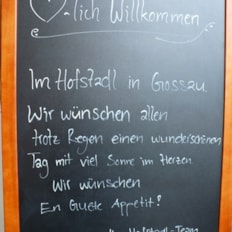 -lich Willkommen
Im Hofstadl in Gossau.
Wir wünschen allen
trotz Regen einen wunderschönen
Tag mit viel Sonne im Herzen
Wir wünschen
En Guete Appetit!
Hofstadl-Team